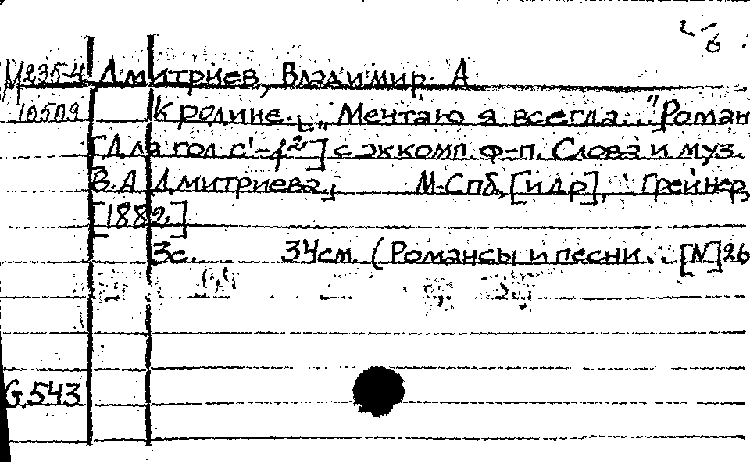 6
М235-4 Дмитриев, Владимир. А
10509 К родине. „Мечтаю я всегда..." Роман
[Для гол. c¹-f²] с аккомп. ф-п. Слова и муз.
В.А Дмитриева.; М-Спб, [и др], Грейнер,
[1882.]
3с. 34см. (Романсы и песни.. [N]26
G.543